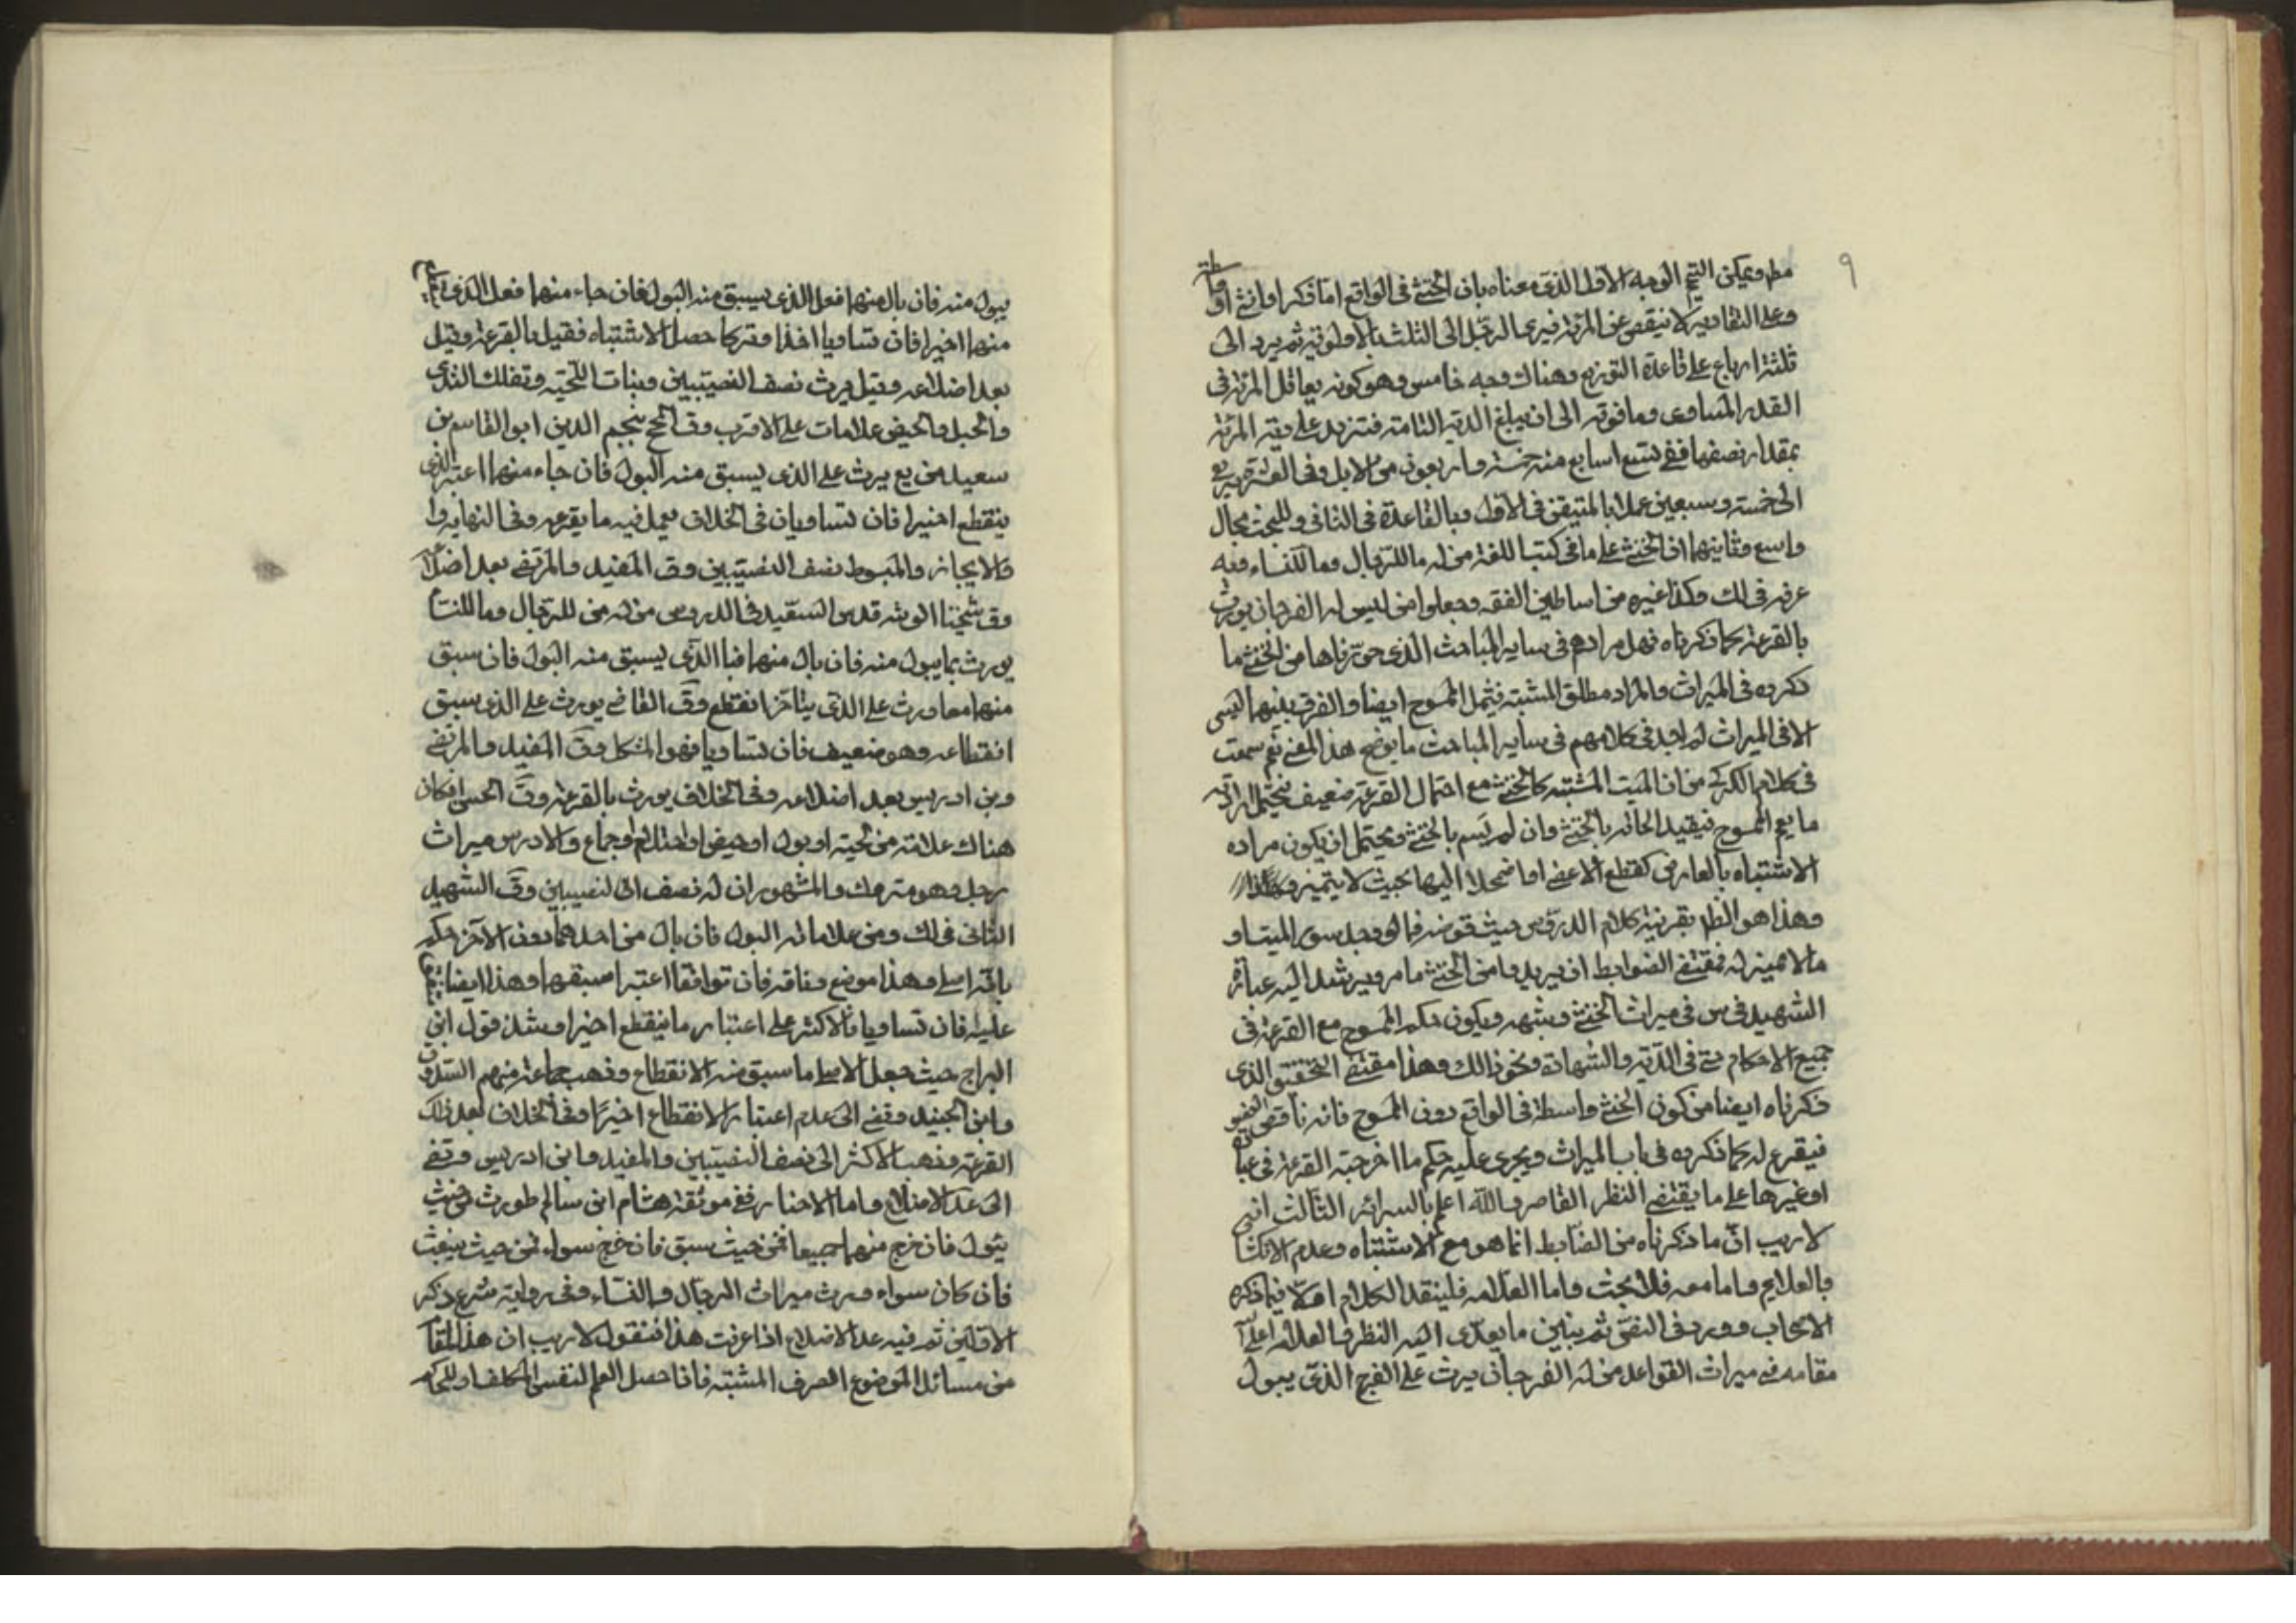 ٩
مطر ويمكن الترجيح الوجه الاول الذي معناه بان الخنثى في الواقع اما ذكر او انثى او واسطة
وعلى التقادير لا ينقص عن المرئة فيرى الرجل الى الثلث بالاولوية ثم يرد الى
ثلثة ارباع على قاعدة التوزيع وهناك وجه خامس وهو كونه يعاقل المرئة في
القدر المساوى وما فوته الى ان يبلغ الدية التامة فتزيد على دية المرئة
بمقدار نصفها ففي تسع اسابع منه خمسة واربعون من الابل وفي العشرة يرجع
الى خمسة وسبعين عملا بالمتيقن في الاول وبالقاعدة في الثاني وللبحث مجال
واسع وثانيهما ان الخنثى على ما في كتب اللغة من له ما للرجال وما للنساء وفيه
عرفه في لك وكذا غيره من اساطين الفقه وجعلوا من ليس له الفرجان يورث
بالقرعة كما ذكرناه فهل مرادهم في ساير المباحث الذي حررناها من الخنثى ما
ذكروه في الميراث والمراد مطلق المشتبه فيشمل الممسوح ايضا والفرق بينهما ليس
الا في الميراث لم اجد في كلامهم في ساير المباحث ما يوضح هذا المعنى نعم سمعت
في كلام الكركي من ان الميت المشتبه كالخنثى مع احتمال القرعة ضعيف فيحتمل ارادته
ما يعم الممسوح فيفيد الحاقه بالخنثى وان لم يسم بالخنثى ويحتمل ان يكون مراده
الاشتباه بالعارض كقطع الاعضاء او اضمحلالها بحيث لا يتميز
وهذا هو الظ بقرينة كلام الدروس حيث فرضه فيما لو وجد سور الميت او
مالا مميز له فمقتضى الضوابط ان يريدوا من الخنثى ما مر ويرشد اليه عبارة
الشهيد في س في ميراث الخنثى وشبهه ويكون حكم الممسوح مع القرعة في
جميع الاحكام حتى في الدية والشهادة ونحو ذلك وهذا مقتضى التحقيق الذي
ذكرناه ايضا من كون الخنثى واسطة في الواقع دون الممسوح فانه ناقص
فيقرع له كما ذكروه في باب الميراث ويجرى عليه حكم ما اخرجته القرعة في عبادة
او غيرها على ما يقتضى النظر القاصر والله اعلم بالسرائر الثالث انه
لا ريب ان ما ذكرناه من الضابط انما هو مع الاشتباه وعدم الانكشاف
بالعلايم واما معه فلا بحث واما العلامة فلينقد الكلام اولا فيما ذكره
الاصحاب وورد في النص ثم بيان ما يؤدى اليه النظر فالعلامة اعلى
مقامه في ميراث القواعد من له الفرجان يرث على الفرج الذي يبول
يبول منه فان بال منهما فعلى الذي يسبق منه البول فان جاء منهما فعلى الذي
منهما اخيرا فان تساويا اخذا وتركا حصل الاشتباه فقيل بالقرعة وقيل
بعد اضلاعه وقيل يرث نصف النصيبين ونبات اللحية وتفلك الثدى
والحبل والحيض علامات على الاقرب وق المحقق نجم الدين ابو القاسم بن
سعيد من يع يرث على الذي يسبق منه البول فان جاء منهما اعتبر الذي
ينقطع اخيرا فان تساويان في الخلاف يعمل فيه ما يقرعه وفي النهاية
والايجاز والمبسوط نصف النصيبين وق المفيد والمرتضى بعد اضلاعه
وق شيخنا الوشه قدس السعيد في الدروس من له من للرجال وما للنساء
يورث بما يبول منه فان بال منهما فبالذي يسبق منه البول فان سبق
منهما معا ورث على الذي يتاخر انقطع وق القاضي يورث على الذي سبق
انقطاعه وهو ضعيف فان تساويا فهو المشكل وق المفيد والمرتضى
وبن ادريس بعد اضلاعه وفي الخلاف يورث بالقرعة وق الحسن ان كان
هناك علامة من لحية او بول او حيض او احتلام او جماع والا ورث ميراث
رجل وهو متروك والمشهور ان له نصف النصيبين وق الشهيد
الثاني في لك ومن علاماته البول فان بال من احدهما دون الآخر حكم
بانه اصلى وهذا موضع وفاق فان توافقا اعتبر اسبقهما وهذا ايضا
عليه فان تساويا فالاكثر على اعتبار ما ينقطع اخيرا وشذ قول ابن
البراج حيث جعل الاصل ما سبق منه الانقطاع وذهب جماعة منهم الصدوق
وابن الجنيد وقفى الى عدم اعتبار الانقطاع اخيرا وفي الخلاف بعد ذلك
القرعة وذهب الاكثر الى نصف النصيبين والمفيد وابن ادريس وتضى
الى عد الاضلاع واما الاخبار ففي موثقة هشام ابن سالم يورث من حيث
يبول فان خرج منهما جميعا فمن حيث سبق فان خرج سواء فمن حيث ينبعث
فان كان سواء ورث ميراث الرجال والنساء وفي رواية شرع ذكر
الاولين ثم فيه عد الاضلاع اذا عرفت هذا فنقول لا ريب ان هذا المقام
من مسائل الموضوع الصرف المشتبه فاذا حصل العلم لنفس المكلف او للحاكم